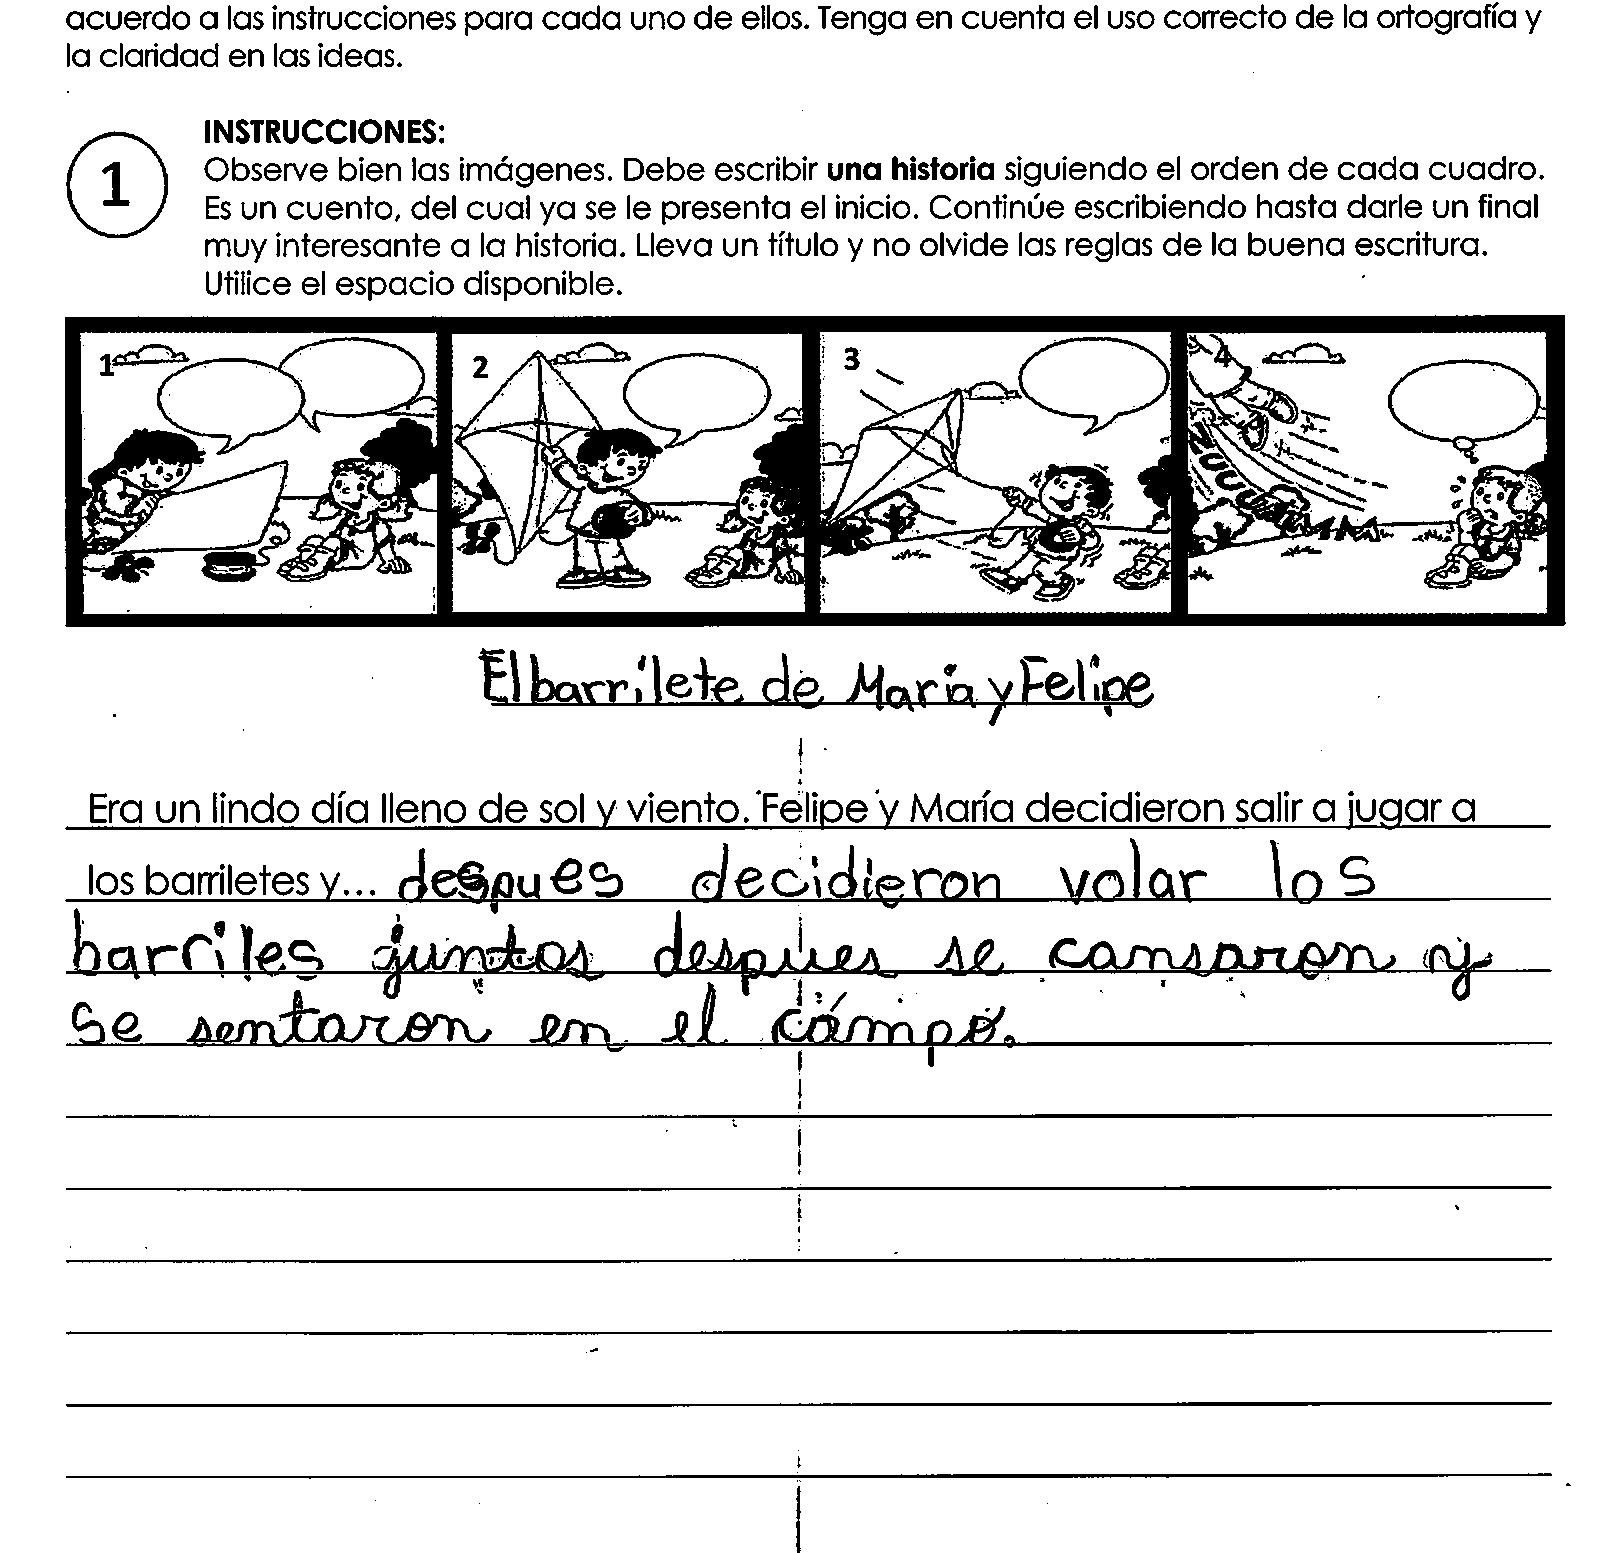 acuerdo a las instrucciones para cada uno de ellos. Tenga en cuenta el uso correcto de la ortografía y
la claridad en las ideas.
1
INSTRUCCIONES:
Observe bien las imágenes. Debe escribir una historia siguiendo el orden de cada cuadro.
Es un cuento, del cual ya se le presenta el inicio. Continúe escribiendo hasta darle un final
muy interesante a la historia. Lleva un título y no olvide las reglas de la buena escritura.
Utilice el espacio disponible.
1 2 3 4
El barrilete de María y Felipe
Era un lindo día lleno de sol y viento. Felipe y María decidieron salir a jugar a
los barriletes y... despues decidieron volar los
barriles juntos despues se cansaron y
se sentaron en el cámpo.